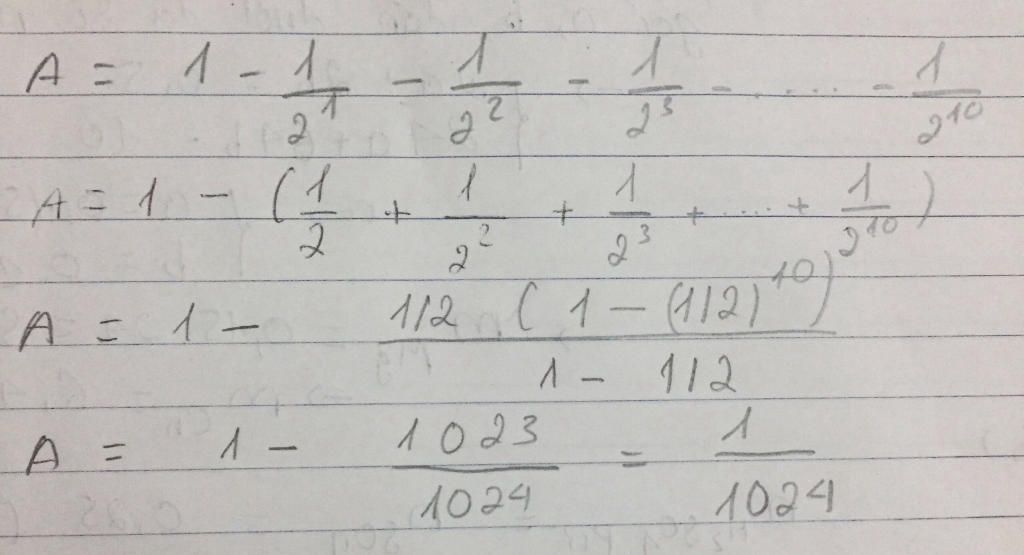 A = 1 - 1/2^1 - 1/2^2 - 1/2^3 - ..... - 1/2^10
A = 1 - (1/2 + 1/2^2 + 1/2^3 + ... + 1/2^10)
A = 1 - (1/2 (1 - (1/2)^10))/(1 - 1/2)
A = 1 - 1023/1024 = 1/1024